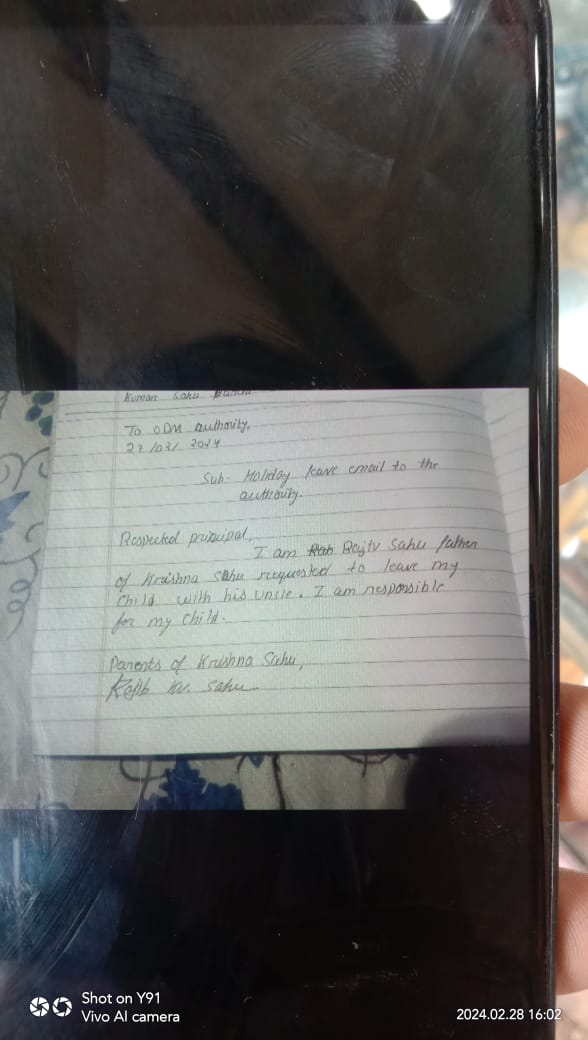 Kumar Sahu
To ODM authority,
27/02/2024
Sub- Holiday leave email to the
authority.
Respected principal,
I am Rajiv Sahu father
of Kraishna Sahu requested to leave my
Child with his uncle. I am responsible
for my child.
Parents of Krishna Sahu,
Rajib Kr. Sahu
Shot on Y91
Vivo AI camera
2024.02.28 16:02